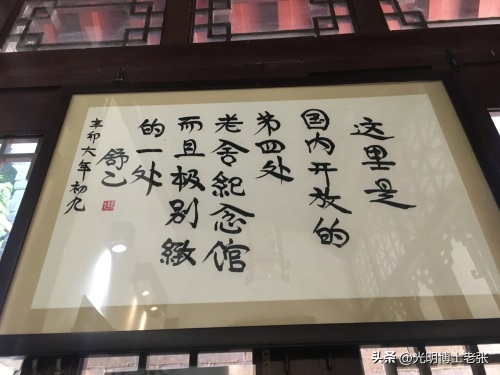 这里是
国内开放的
第四处
老舍紀念馆
而且极别緻
的一处
舒乙
辛卯六年初九
头条 @光明博士老张